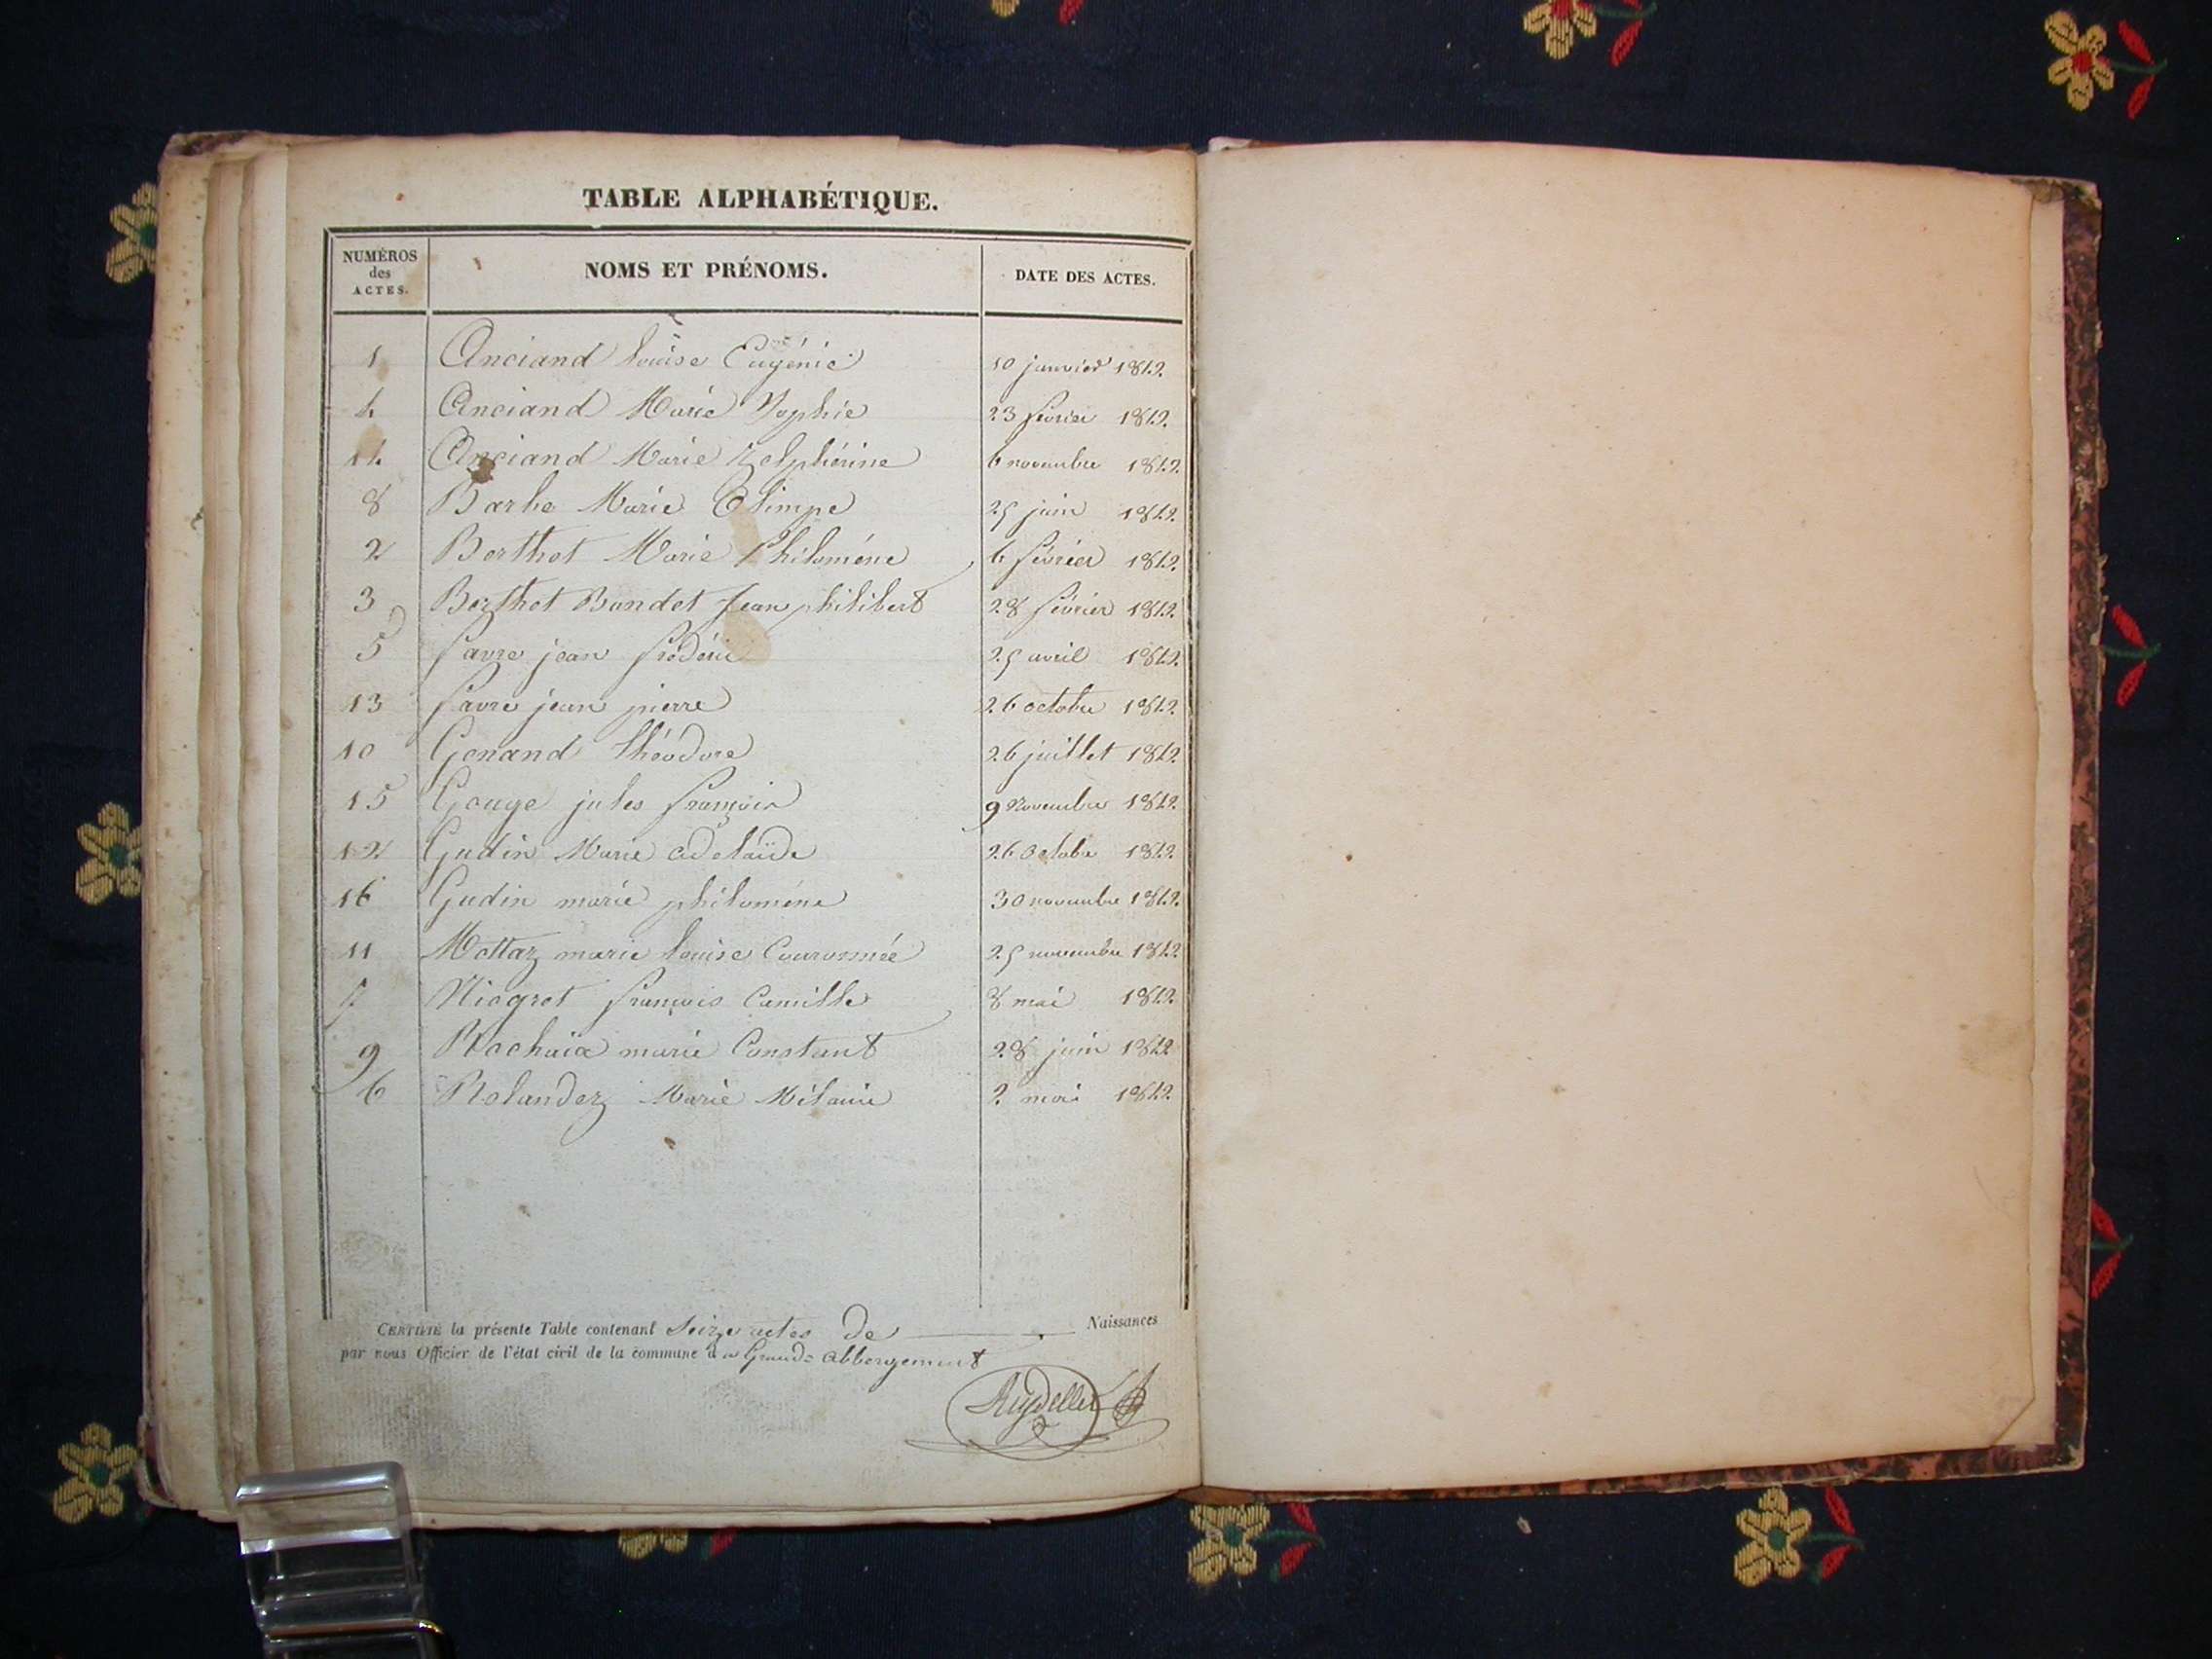 TABLE ALPHABÉTIQUE.
NUMÉROS des ACTES. NOMS ET PRÉNOMS. DATE DES ACTES.
1 Anciand Louise Eugénie 10 janvier 1842
4 Anciand Marie Sophie 23 février 1842
14 Anciand Marie Zelphérine 6 novembre 1842
8 Barbe Marie Olimpe 25 juin 1842
2 Berthet Marie Philomène 6 février 1842
3 Berthet Bondet Jean philibert 28 février 1842
5 favre jean frédéric 25 avril 1842
13 favre jean pierre 26 octobre 1842
10 Genand théodore 26 juillet 1842
15 Gouge jules françois 9 Novembre 1842
12 Gudin Marie adelaïde 26 Octobre 1842
16 Gudin marie philomène 30 novembre 1842
11 Mottaz marie Louise Couronnée 25 novembre 1842
7 Niogret françois Camille 8 mai 1842
9 Rochaix marie Constant 28 juin 1842
6 Rolandez Marie Mélanie 2 mai 1842
CERTIFIÉ la présente Table contenant Seize actes de Naissances
par nous Officier de l'état civil de la commune d u Grand-Abbergement